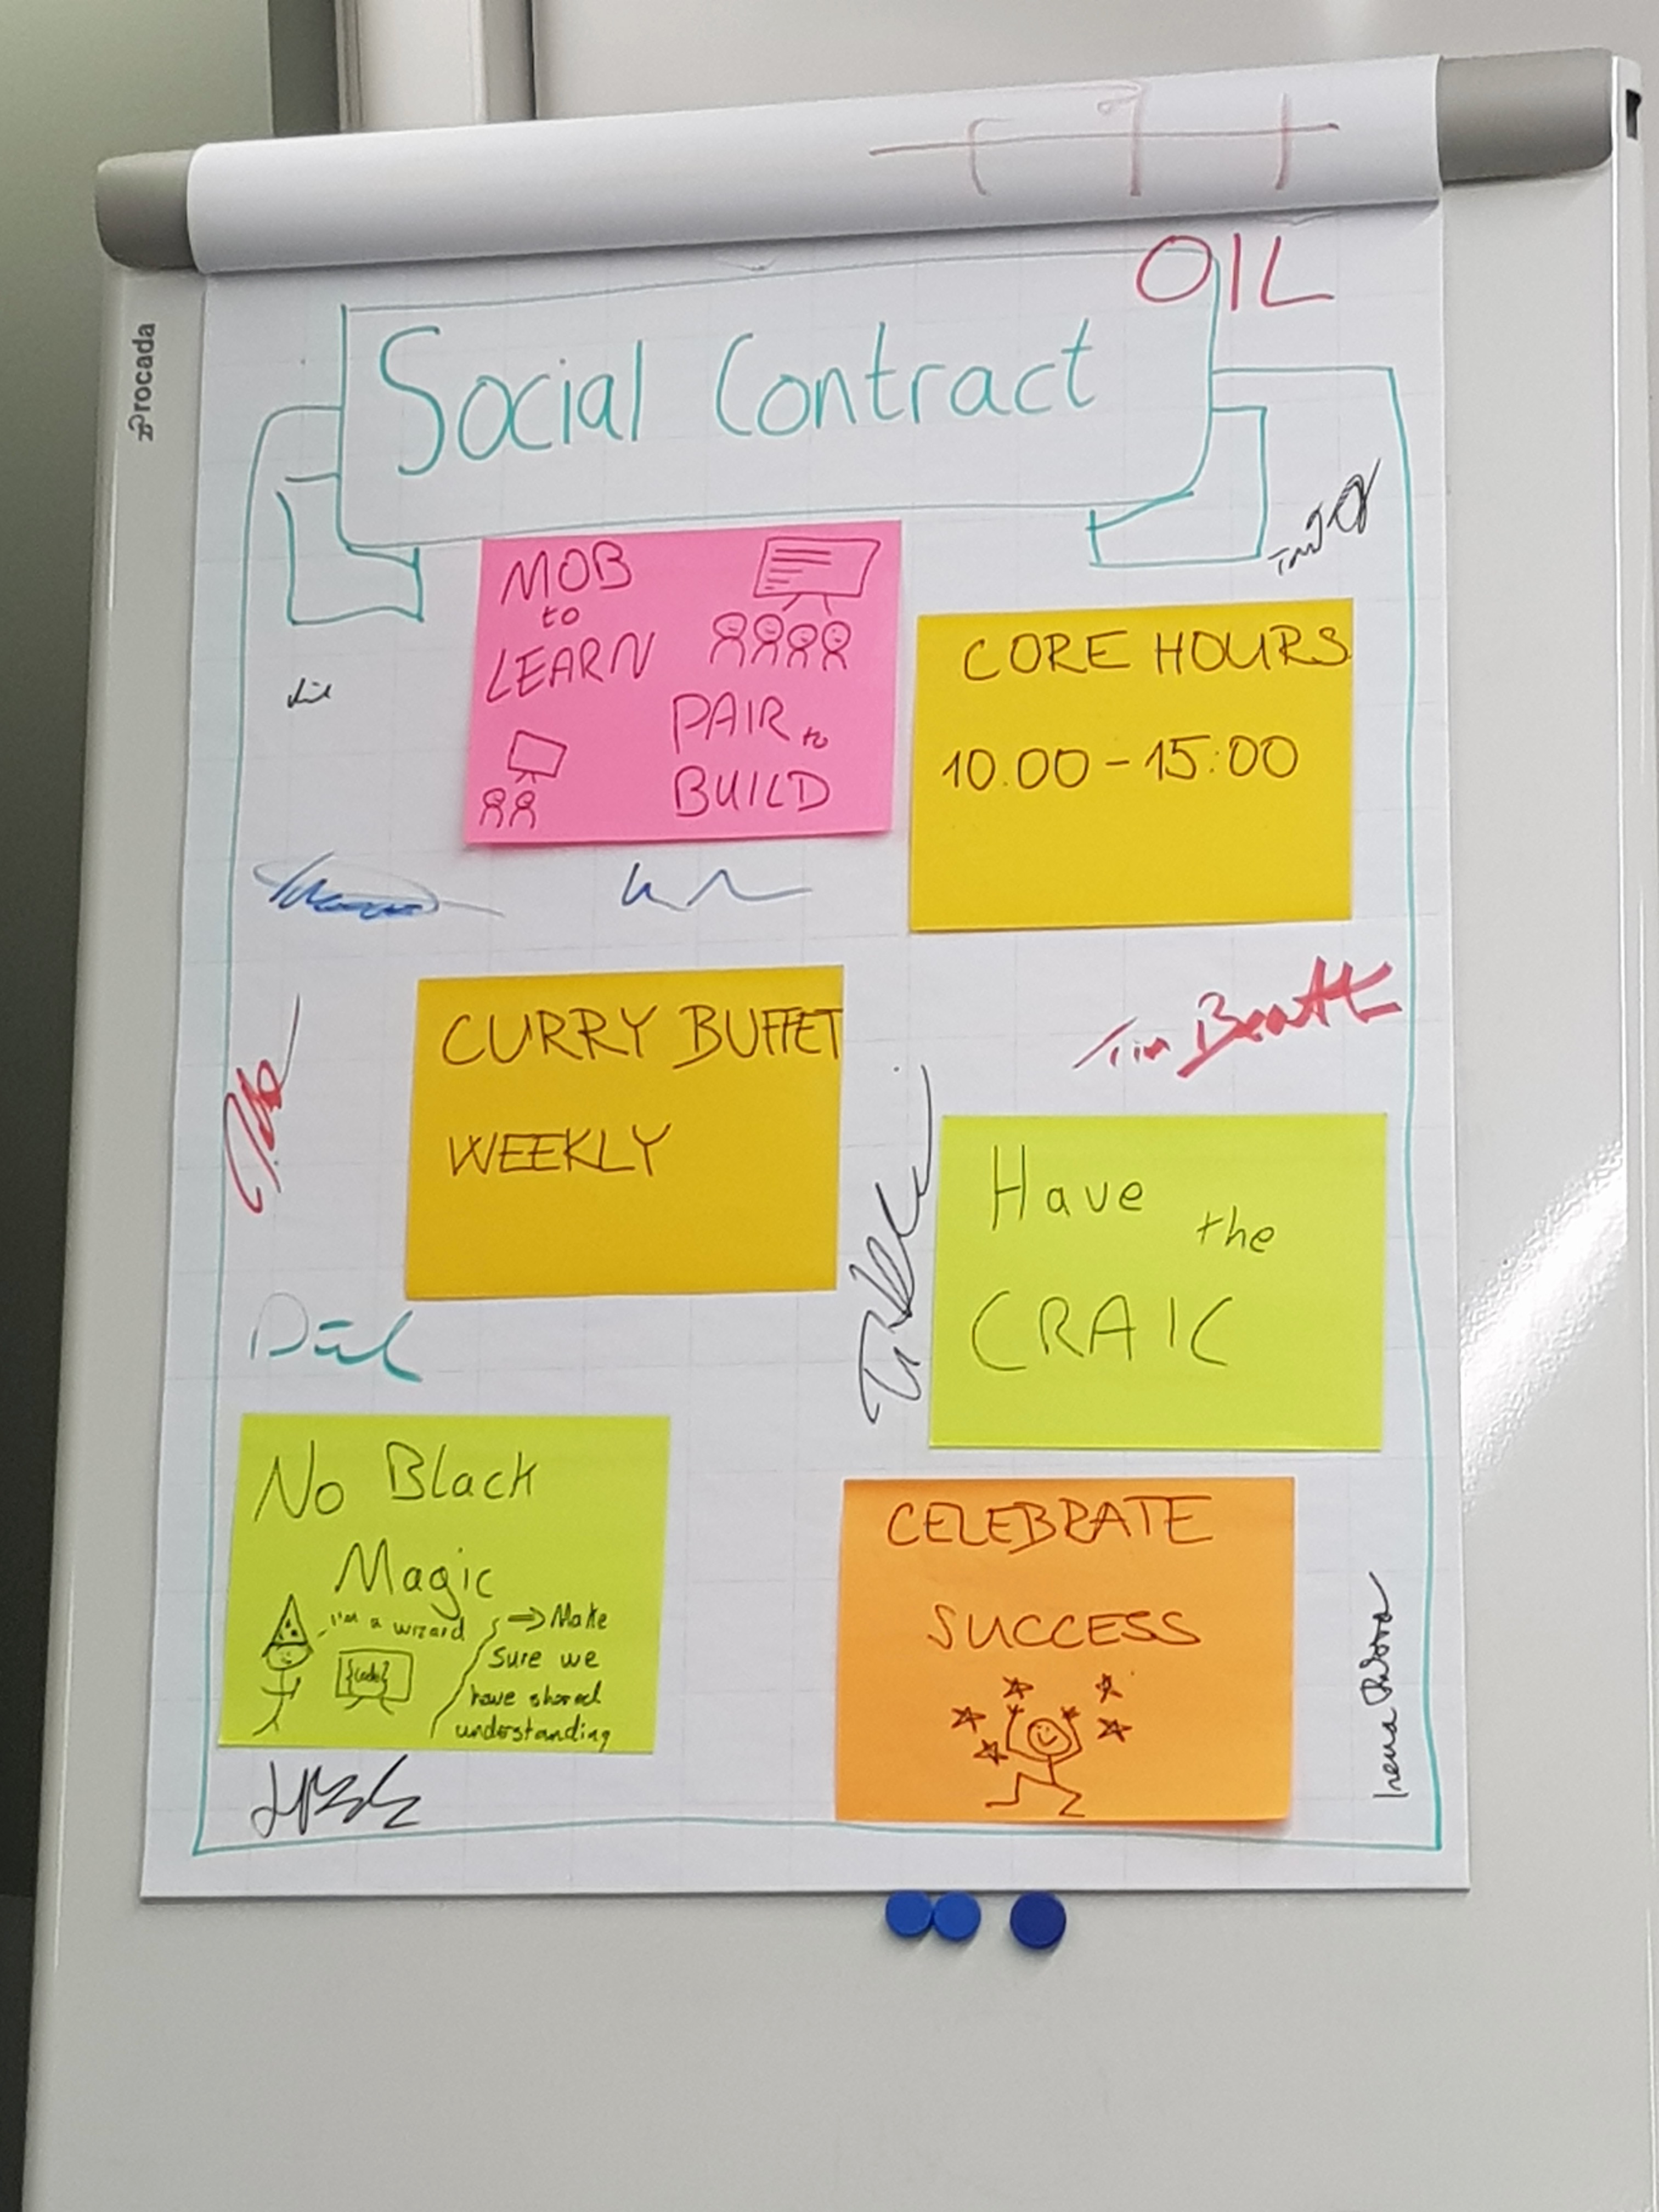 rocada
OIL
Social Contract
MOB
to
LEARN
PAIR to
BUILD
CORE HOURS
10.00 - 15:00
CURRY BUFFET
WEEKLY
Tim Beatt
Have the
CRAIC
No Black
Magic
I'm a wizard
{code}
⇒ Make
Sure we
have shared
understanding
CELEBRATE
SUCCESS
Irena